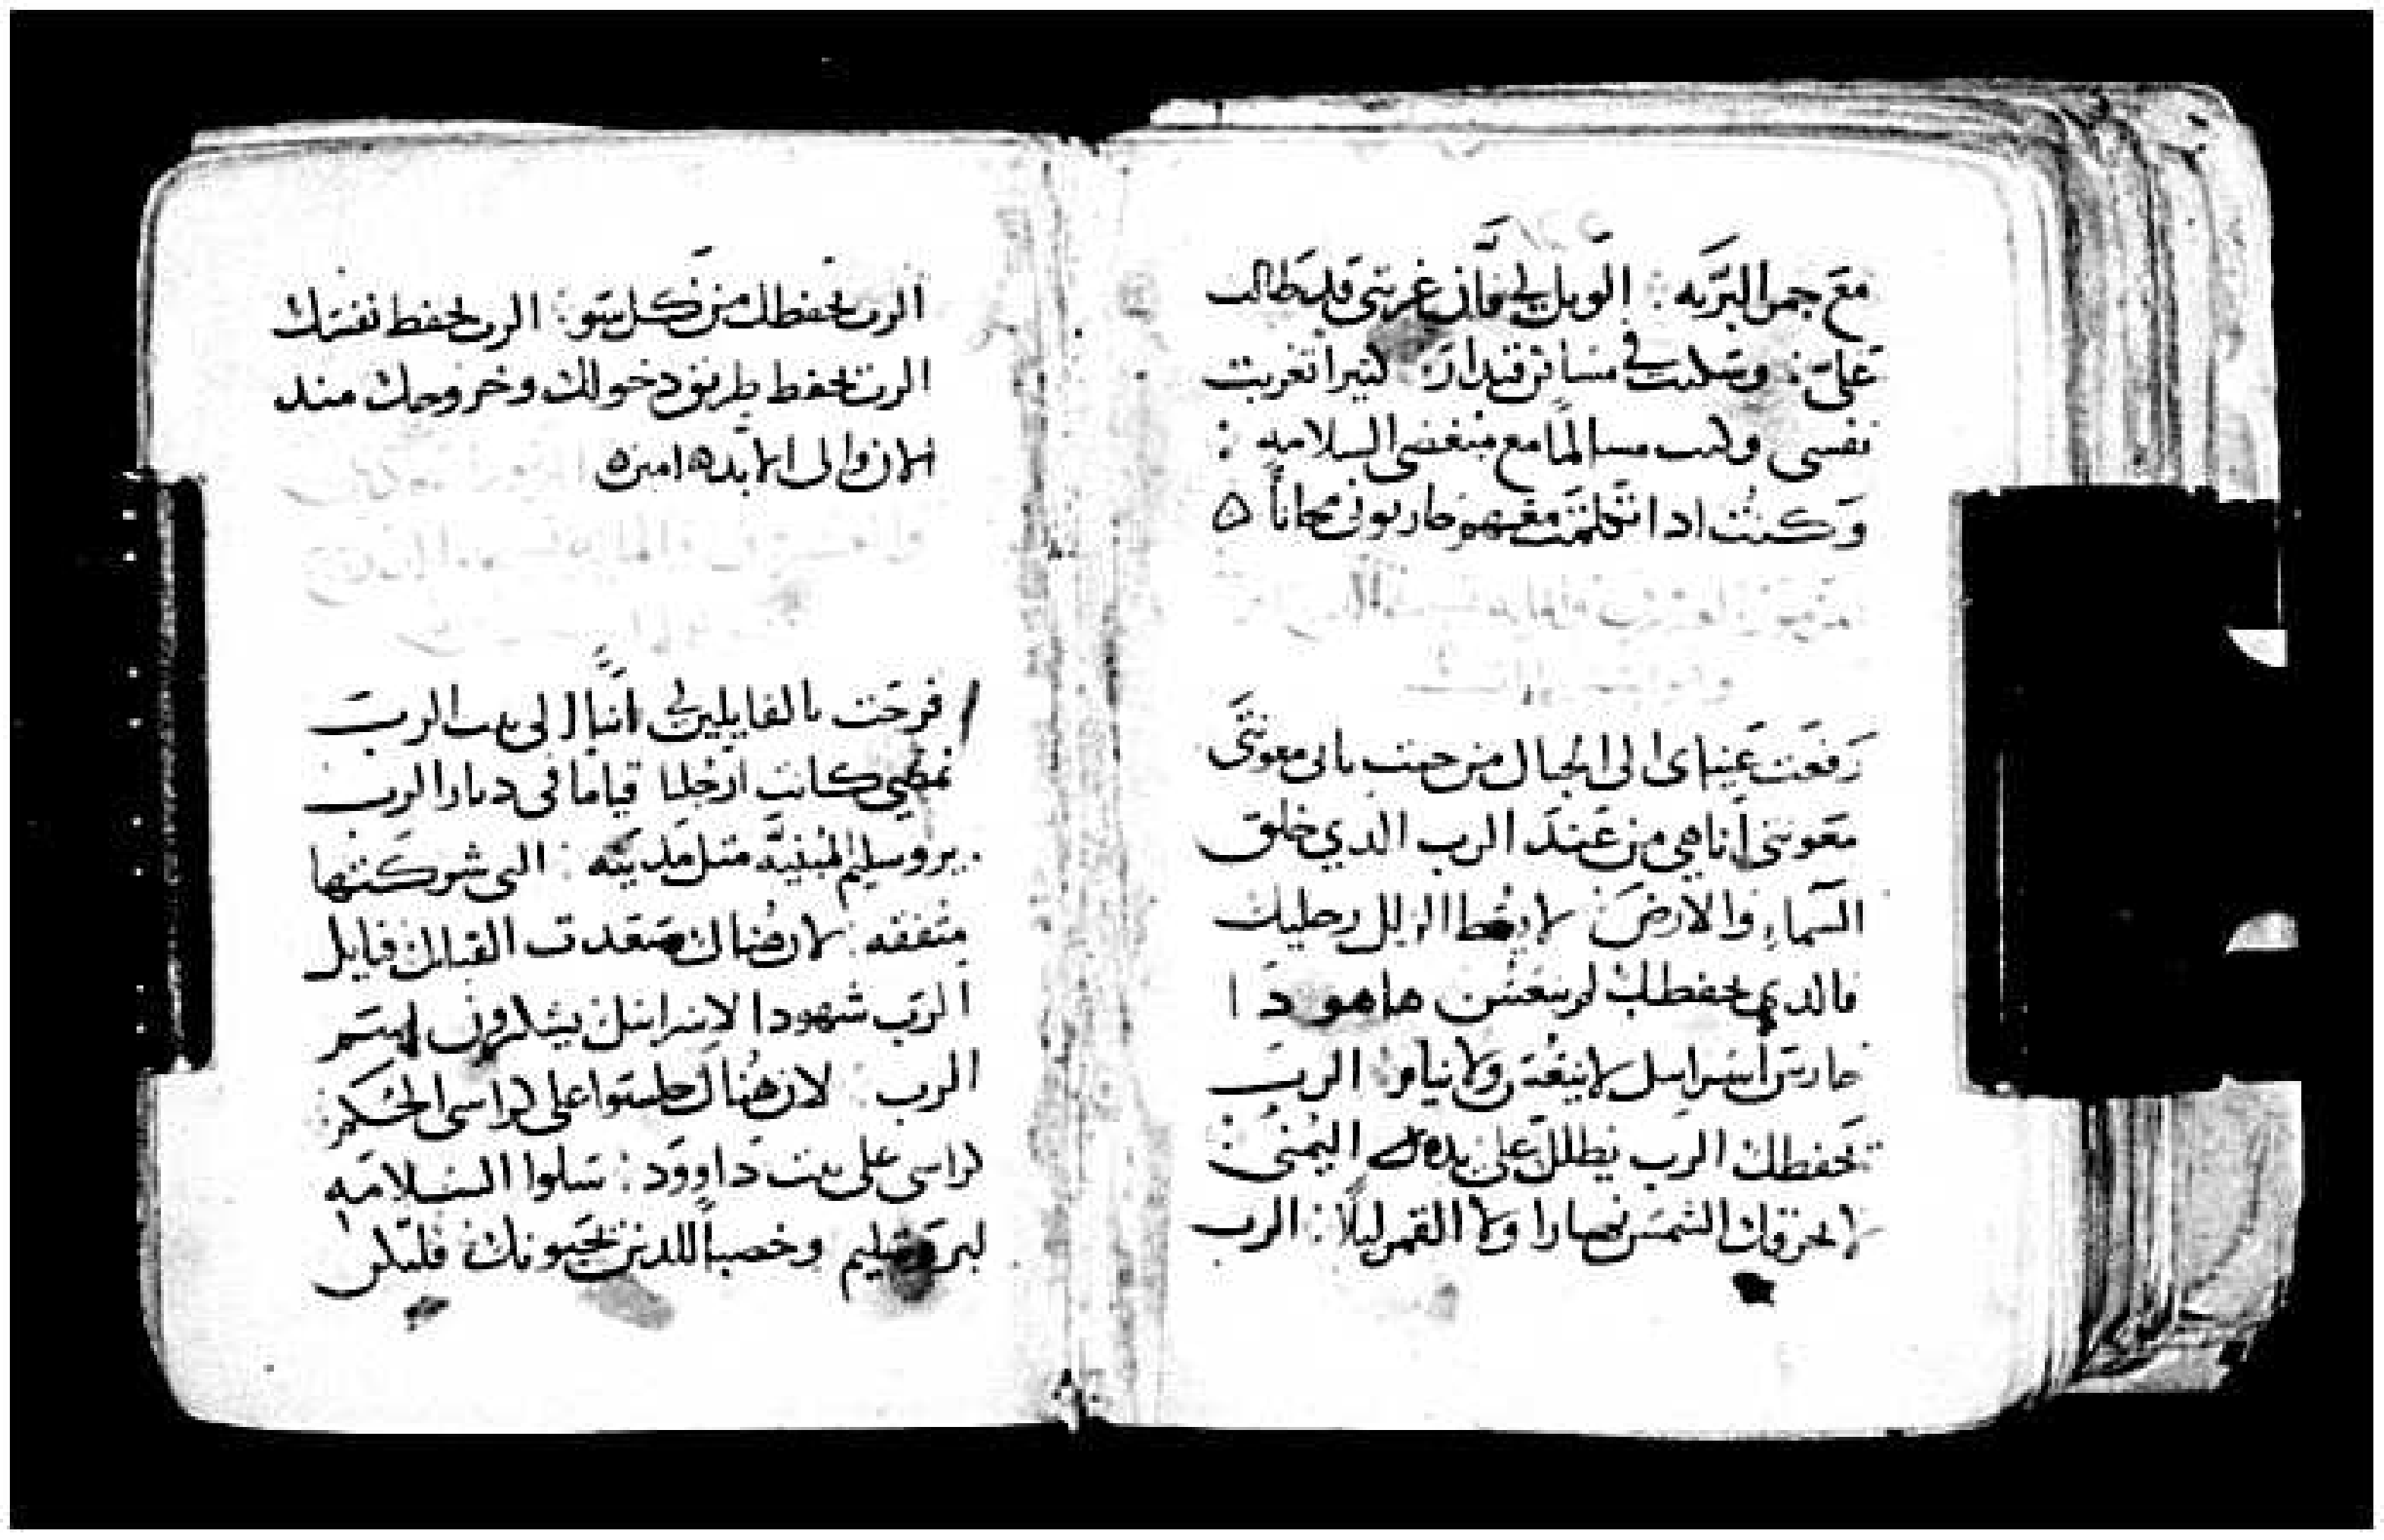 مع جمر البريه : الويل لي فان غربتي قد طالت
علي : وسكنت في مساكن قيدار : كثيرا تغربت
نفسي وكنت مسالما مع مبغضي السلامه :
وكنت ادا تكلمت معهم حاربوني مجانا ٥
رفعت عيناي الى الجبال من حيث ياتي معونتي
معونتي انا هي من عند الرب الدي خلق
السماء والارض : لا يعط الزلل رجليك
فالدي يحفظك لم ينعس هاهو دا
حارس اسرايل لا ينعس ولا ينام : الرب
يحفظك الرب يظلل على يدك اليمنى :
لا تحرقك الشمس نهارا ولا القمر ليلا : الرب
الرب يحفظك من كل سو : الرب يحفظ نفسك
الرب يحفظ طريق دخولك وخروجك مند
الان والى الابد ٥ امين ٥
فرحت بالقايلين لي اننا الى بيت الرب
نمضي كانت ارجلنا قياما في ديار الرب
يروسليم المبنيه مثل مدينه : التي شركتها
متفقه : لان هناك صعدت القبايل قبايل
الرب شهودا لاسرايل يشكرون لاسم
الرب : لان هناك جلسوا على كراسي الحكم :
كراسي على بيت داوود : سلوا السلامه
ليروشليم وخصبا للدين يحبونك فليكن